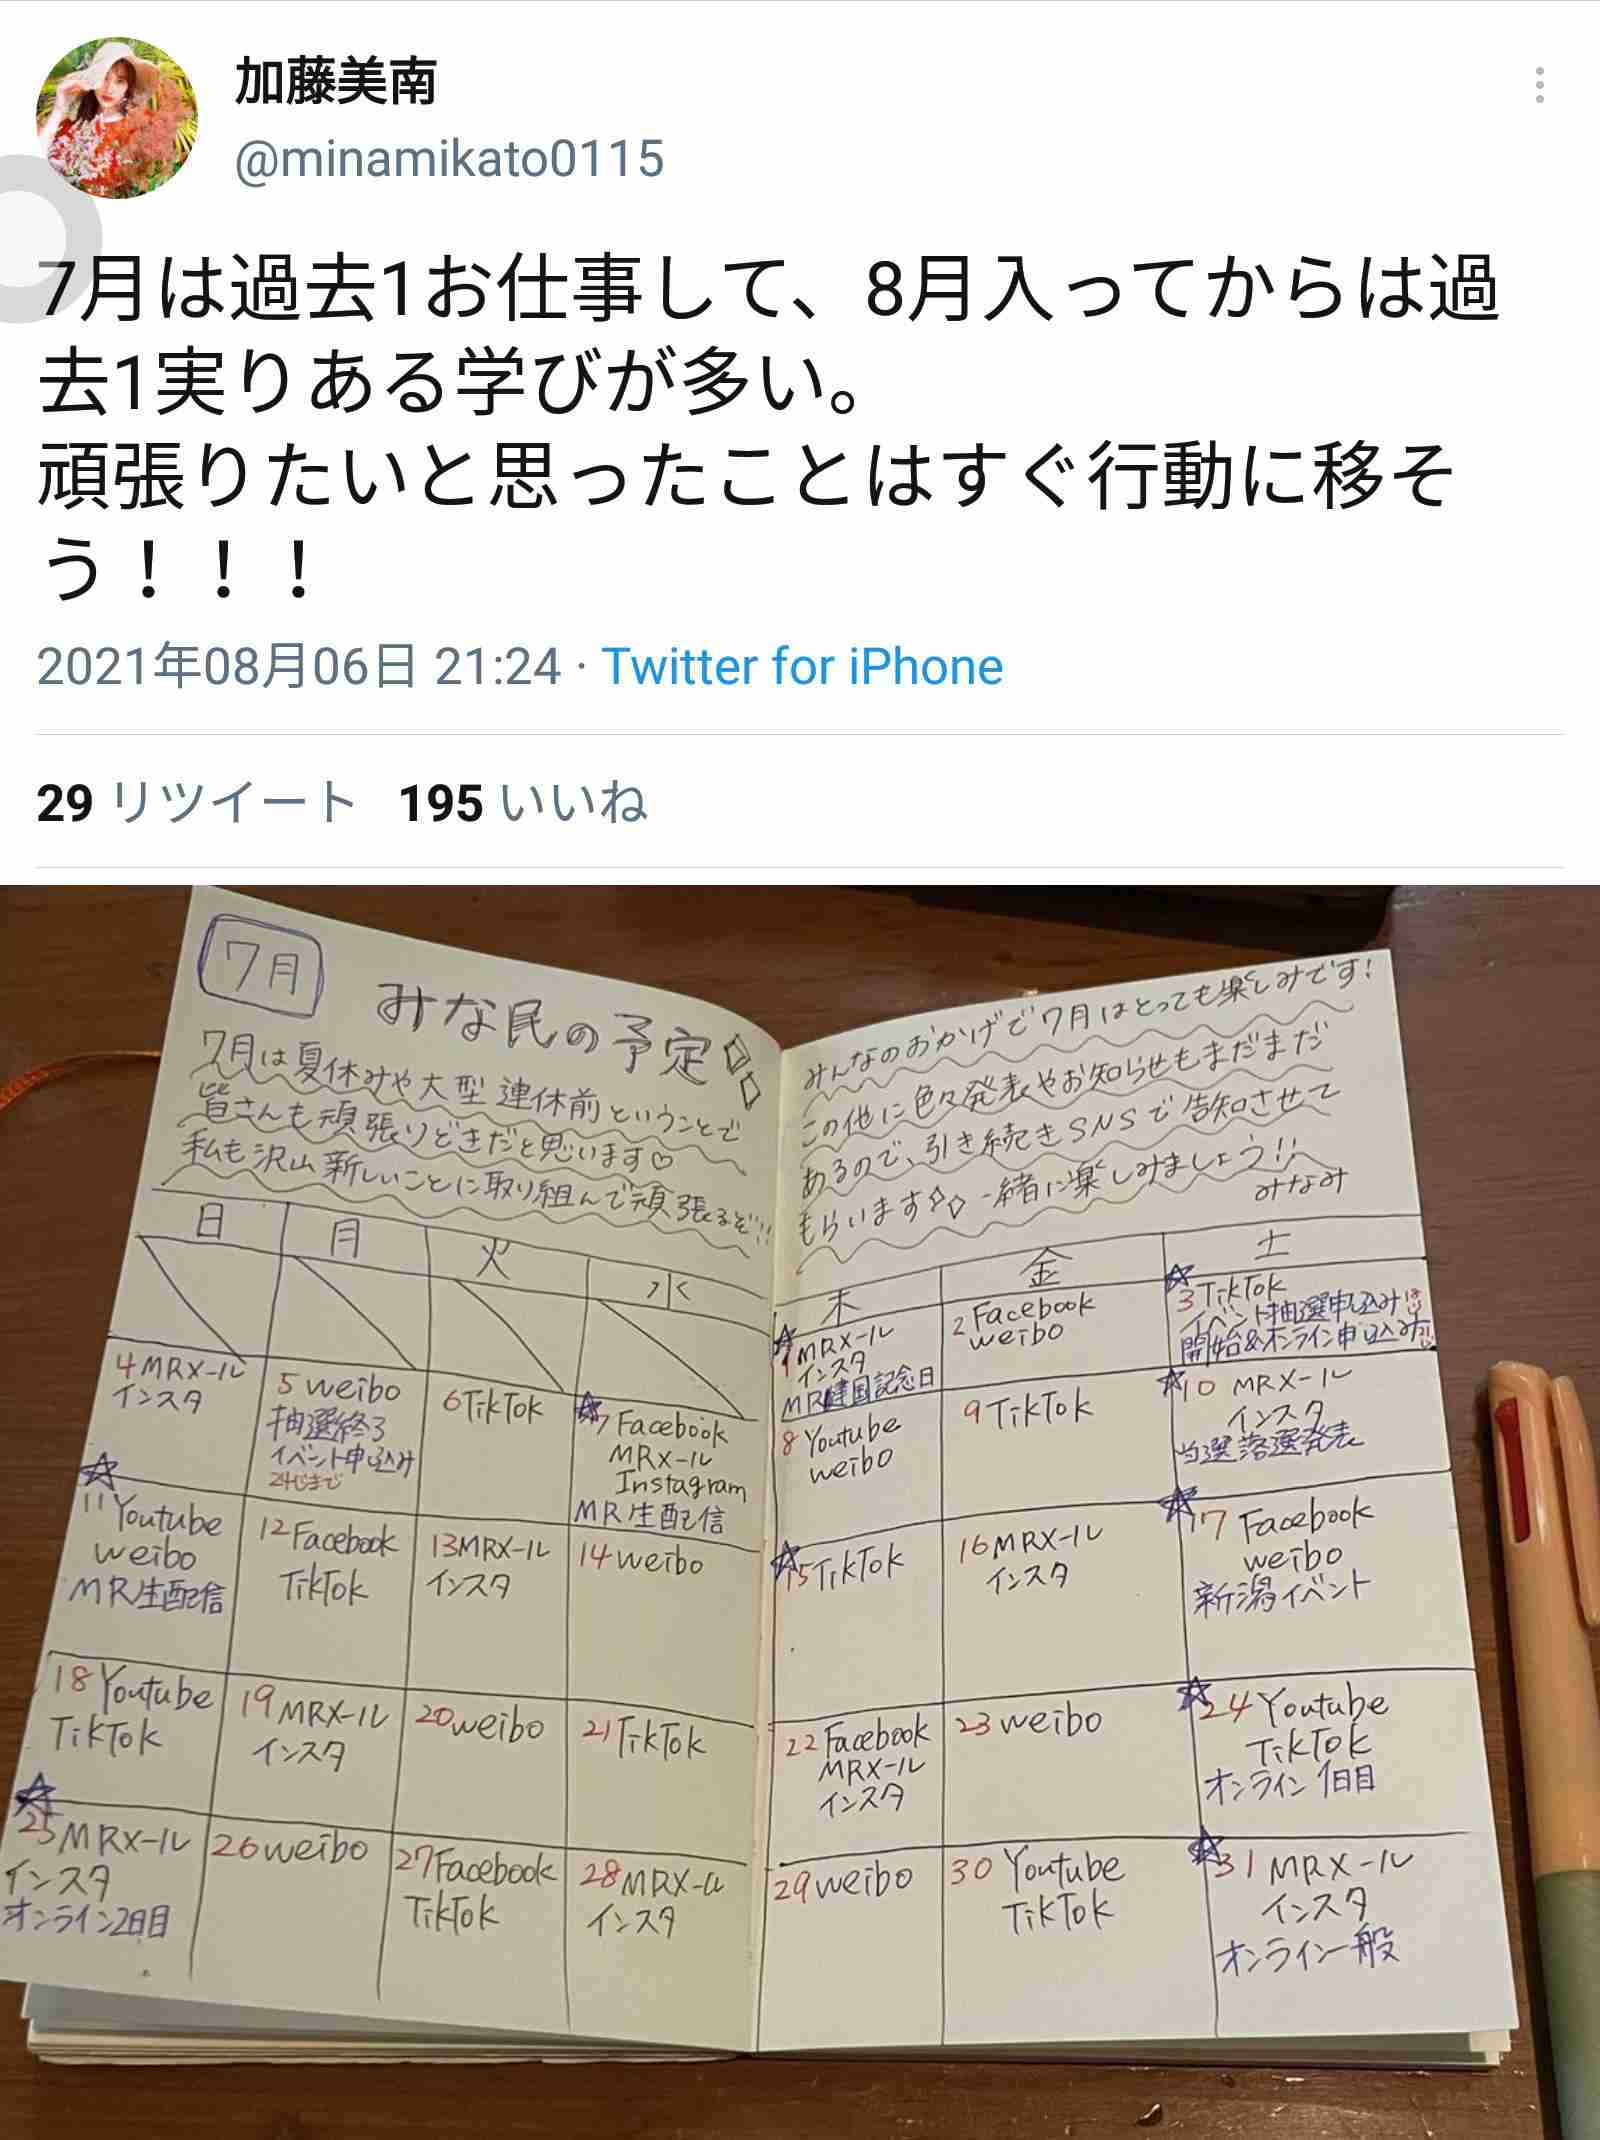 加藤美南
@minamikato0115
7月は過去1お仕事して、8月入ってからは過
去1実りある学びが多い。
頑張りたいと思ったことはすぐ行動に移そ
う！！！
2021年08月06日 21:24 · Twitter for iPhone
29 リツイート 195 いいね
7月
みな民の予定
7月は夏休みや大型連休前ということで
皆さんも頑張りどきだと思います♡
私も沢山新しいことに取り組んで頑張るぞ!!
みんなのおかげで7月はとっても楽しみです!
この他に色々発表やお知らせもまだまだ
あるので、引き続きSNSで告知させて
もらいます 一緒に楽しみましょう!!
みなみ
日 月 火 水 木 金 土
☆1 MRメール
インスタ
MR建国記念日
2 Facebook
weibo
☆3 TikTok
イベント抽選申し込み
開始&オンライン申し込み
4 MRメール
インスタ
5 weibo
抽選終了
イベント申し込み
24じまで
6 TikTok
☆7 Facebook
MRメール
Instagram
MR生配信
8 Youtube
weibo
9 TikTok
☆10 MRメール
インスタ
当選落選発表
☆11 Youtube
weibo
MR生配信
12 Facebook
TikTok
13 MRメール
インスタ
14 weibo
☆15 TikTok
16 MRメール
インスタ
☆17 Facebook
weibo
新潟イベント
18 Youtube
TikTok
19 MRメール
インスタ
20 weibo
21 TikTok
22 Facebook
MRメール
インスタ
23 weibo
☆24 Youtube
TikTok
オンライン1日目
☆25 MRメール
インスタ
オンライン2日目
26 weibo
27 Facebook
TikTok
28 MRメール
インスタ
29 weibo
30 Youtube
TikTok
☆31 MRメール
インスタ
オンライン一般